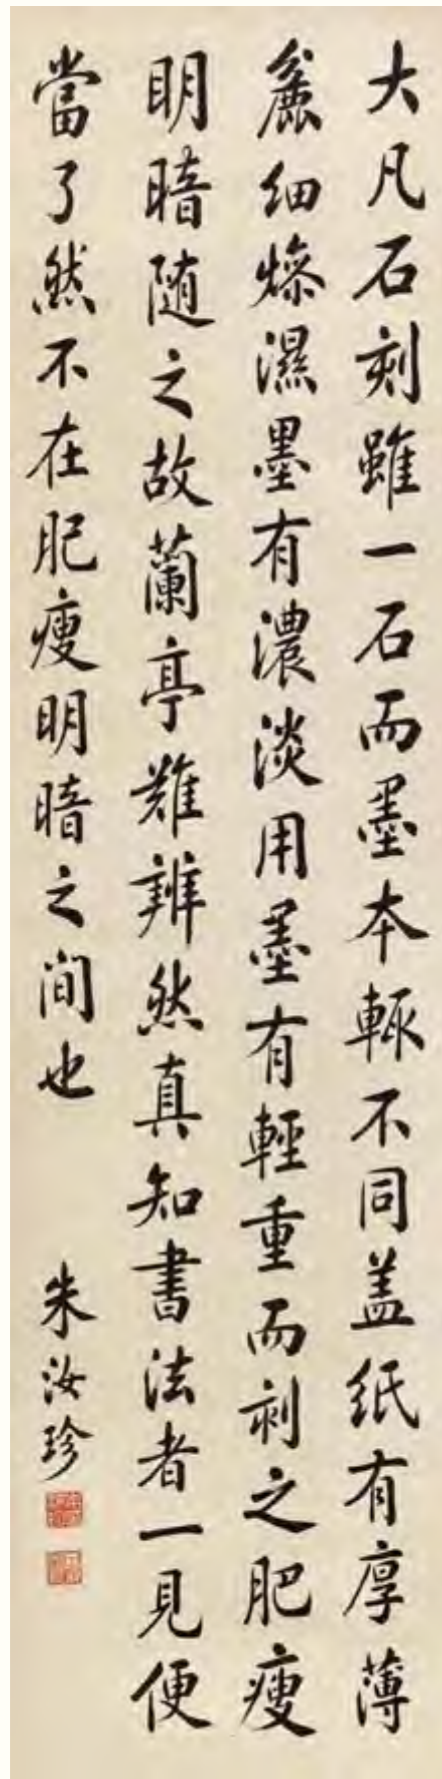 大凡石刻雖一石而墨本輒不同盖紙有厚薄
麄細燥濕墨有濃淡用墨有輕重而刻之肥瘦
明暗随之故蘭亭難辨然真知書法者一見便
當了然不在肥瘦明暗之間也
朱汝珍